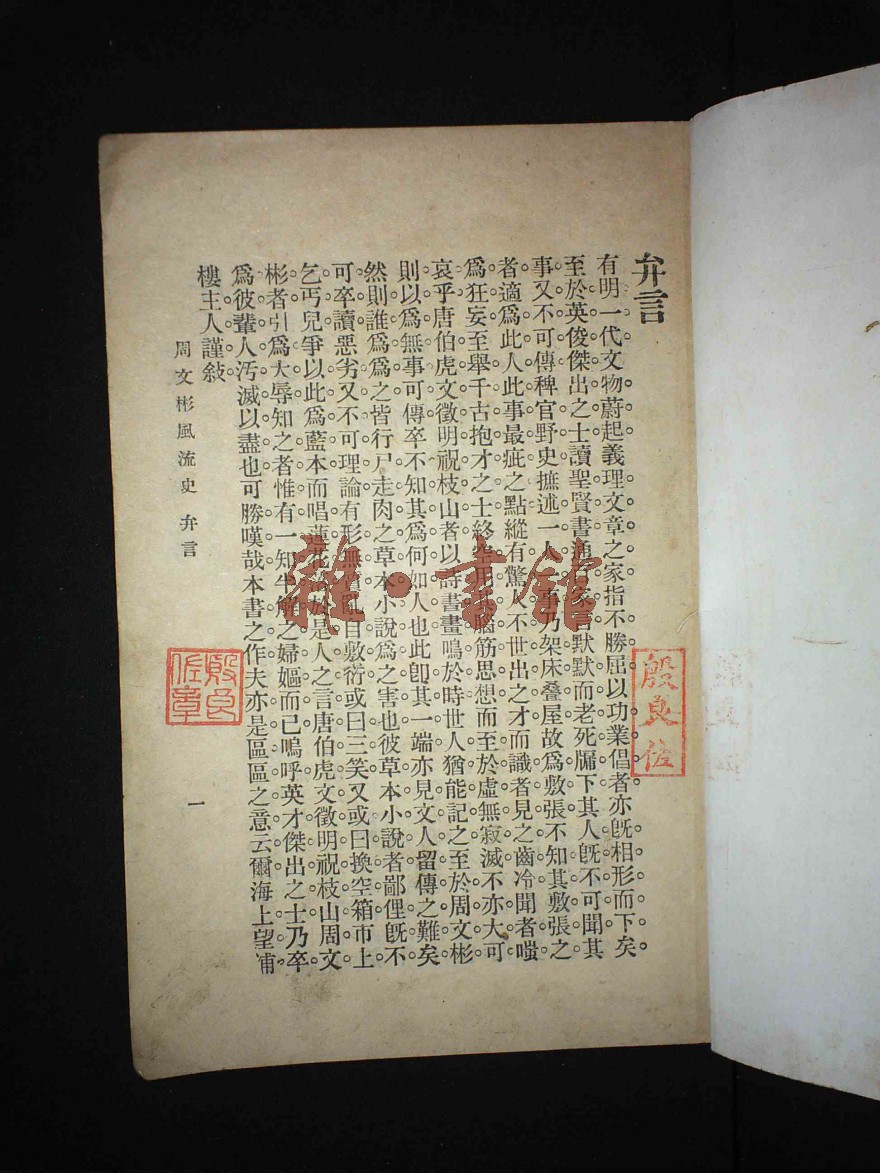 弁言
有明一代文物蔚起義理文章之家指不勝屈以功業倡者亦旣相形而下矣
至於英俊傑出之士讀聖賢書家言默默而老死牖下其人旣不可聞其
事又不可傳稗官野史摭述一人事乃架床叠屋故爲敷張不知其敷張之
者適爲此人此事最疵之點縱有驚人不世出之才而識者見之齒冷聞者嗤
爲狂妄至舉千古抱才之士終用腦筋思想而至於虛無寂滅不亦大可
哀乎唐伯虎文徵明祝枝山者以詩書畫鳴於時世人猶能記之至於周文彬
則以爲無事可傳卒不知其爲何如人也此卽其一端亦見文人留傳之難矣
然則誰爲爲之皆行尸走肉之草本小說爲之害也彼草本小說者鄙俚旣不
可卒讀惡劣又不可理論有形無亂自敷衍或曰三笑又或曰換空箱市上
乞丐兒爭以此爲藍本而唱蓮花落於是人之言唐伯虎文徵明祝枝山周文
彬者引爲大辱知之者惟有一知半解之婦嫗而已嗚呼英才傑出之士乃卒
爲彼輩人汚滅以盡也可勝嘆哉本書之作夫亦是區區之意云爾海上望浦
樓主人謹敍
周文彬風流史 弁言
一
殷良佐
殷良佐章
雜·書館